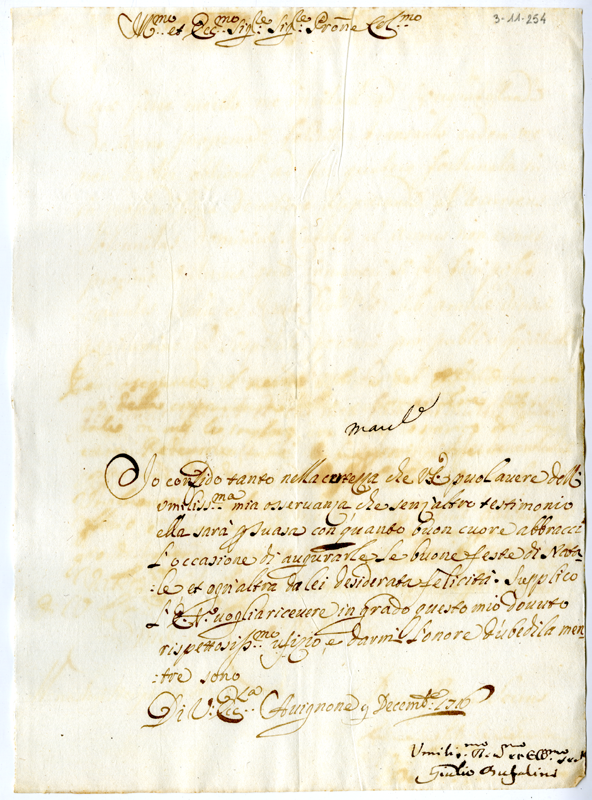 3-11-254
Ill.mo et Ecc.mo Sig.re Sig.re Prōne Col.mo
Io confido tanto nella certezza che V.E. puol avere dell
umiliss.ma mia osservanza che senz'altro testimonio
ella sarà psuasa con quanto buon cuore abbracci
l'occasione di augurarle le buone feste di Nata-
:le et ogn'altra da lei desiderata felicità. Supplico
l'E.V. voglia ricevere in grado questo mio dovuto
rispettosiss.mo ufizio, e darmi l'onore d'ubedila men-
:tre sono
Di V. Ecc.za Avignone 9 Decemb.e 1716
Umiliss.mo
Giulio Bufalini